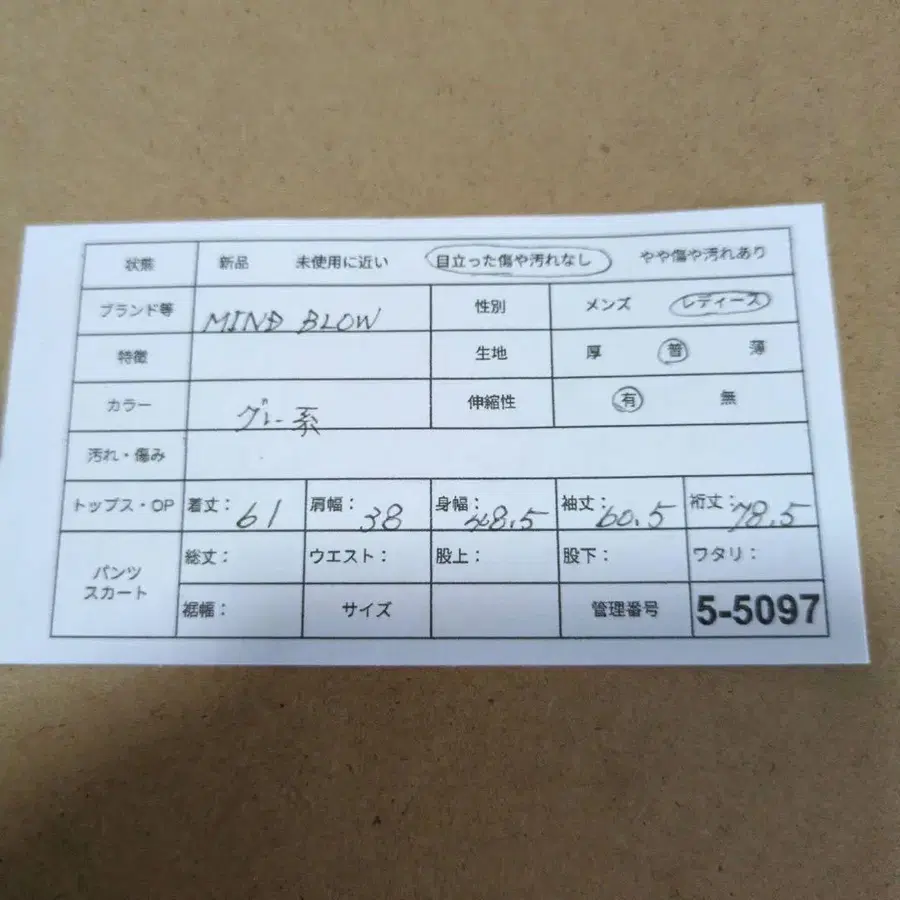 状態 新品 未使用に近い 目立った傷や汚れなし やや傷や汚れあり
ブランド等 MIND BLOW 性別 メンズ レディース
特徴 生地 厚 普 薄
カラー グレー系 伸縮性 有 無
汚れ・傷み
トップス・OP 着丈: 61 肩幅: 38 身幅: 48.5 袖丈: 60.5 裄丈: 78.5
パンツ 総丈: ウエスト: 股上: 股下: ワタリ:
スカート 裾幅: サイズ 管理番号 5-5097